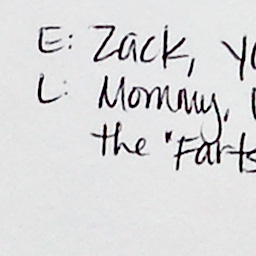 E: Zack,
L: Mommy,
the "Farts